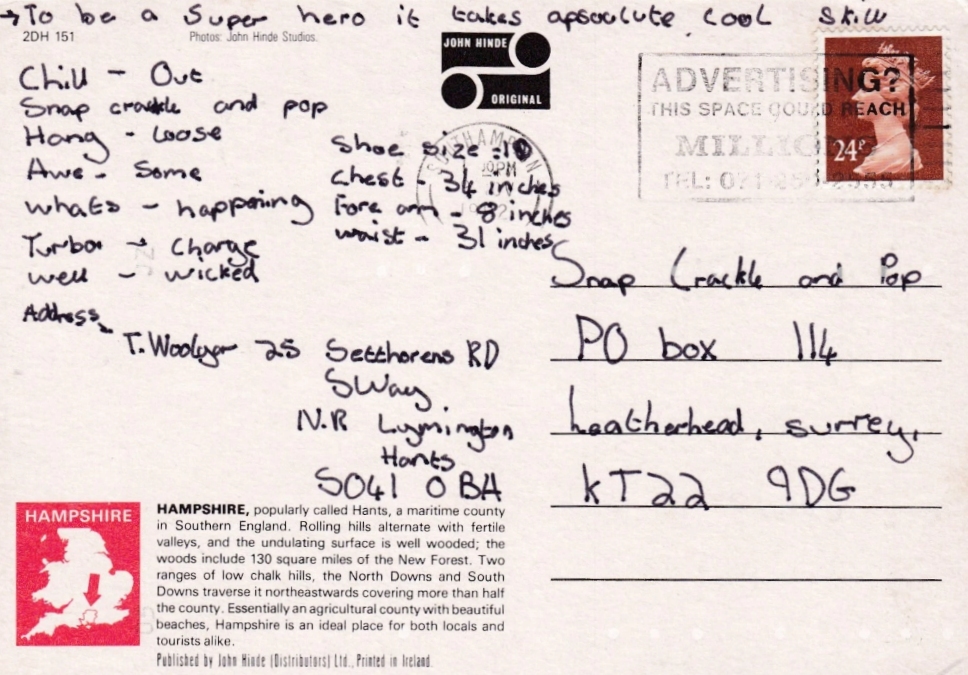 → To be a Super hero it takes apsoulute cool skill
2DH 151
Photos: John Hinde Studios.
JOHN HINDE
ORIGINAL
ADVERTISING?
THIS SPACE COULD REACH
TEL: 071-
24P
SOUTHAMPTON
PM
Chill - Out
Snap crackle and pop
Hang - Loose
Awe - Some
whats - happening
Turbo → Charge
well - wicked
Shoe size :
Chest - 34 inches
Fore arm - 8 inches
waist - 31 inches
Address
T. Woolgar 25 Setthorens RD
SWay
N.R Luymington
Hants
SO41 0BA
Snap Crackle and Pop
PO box 114
Leatherhead, surrey,
KT22 9DG
HAMPSHIRE
HAMPSHIRE, popularly called Hants, a maritime county
in Southern England. Rolling hills alternate with fertile
valleys, and the undulating surface is well wooded; the
woods include 130 square miles of the New Forest. Two
ranges of low chalk hills, the North Downs and South
Downs traverse it northeastwards covering more than half
the county. Essentially an agricultural county with beautiful
beaches, Hampshire is an ideal place for both locals and
tourists alike.
Published by John Hinde (Distributors) Ltd., Printed in Ireland.